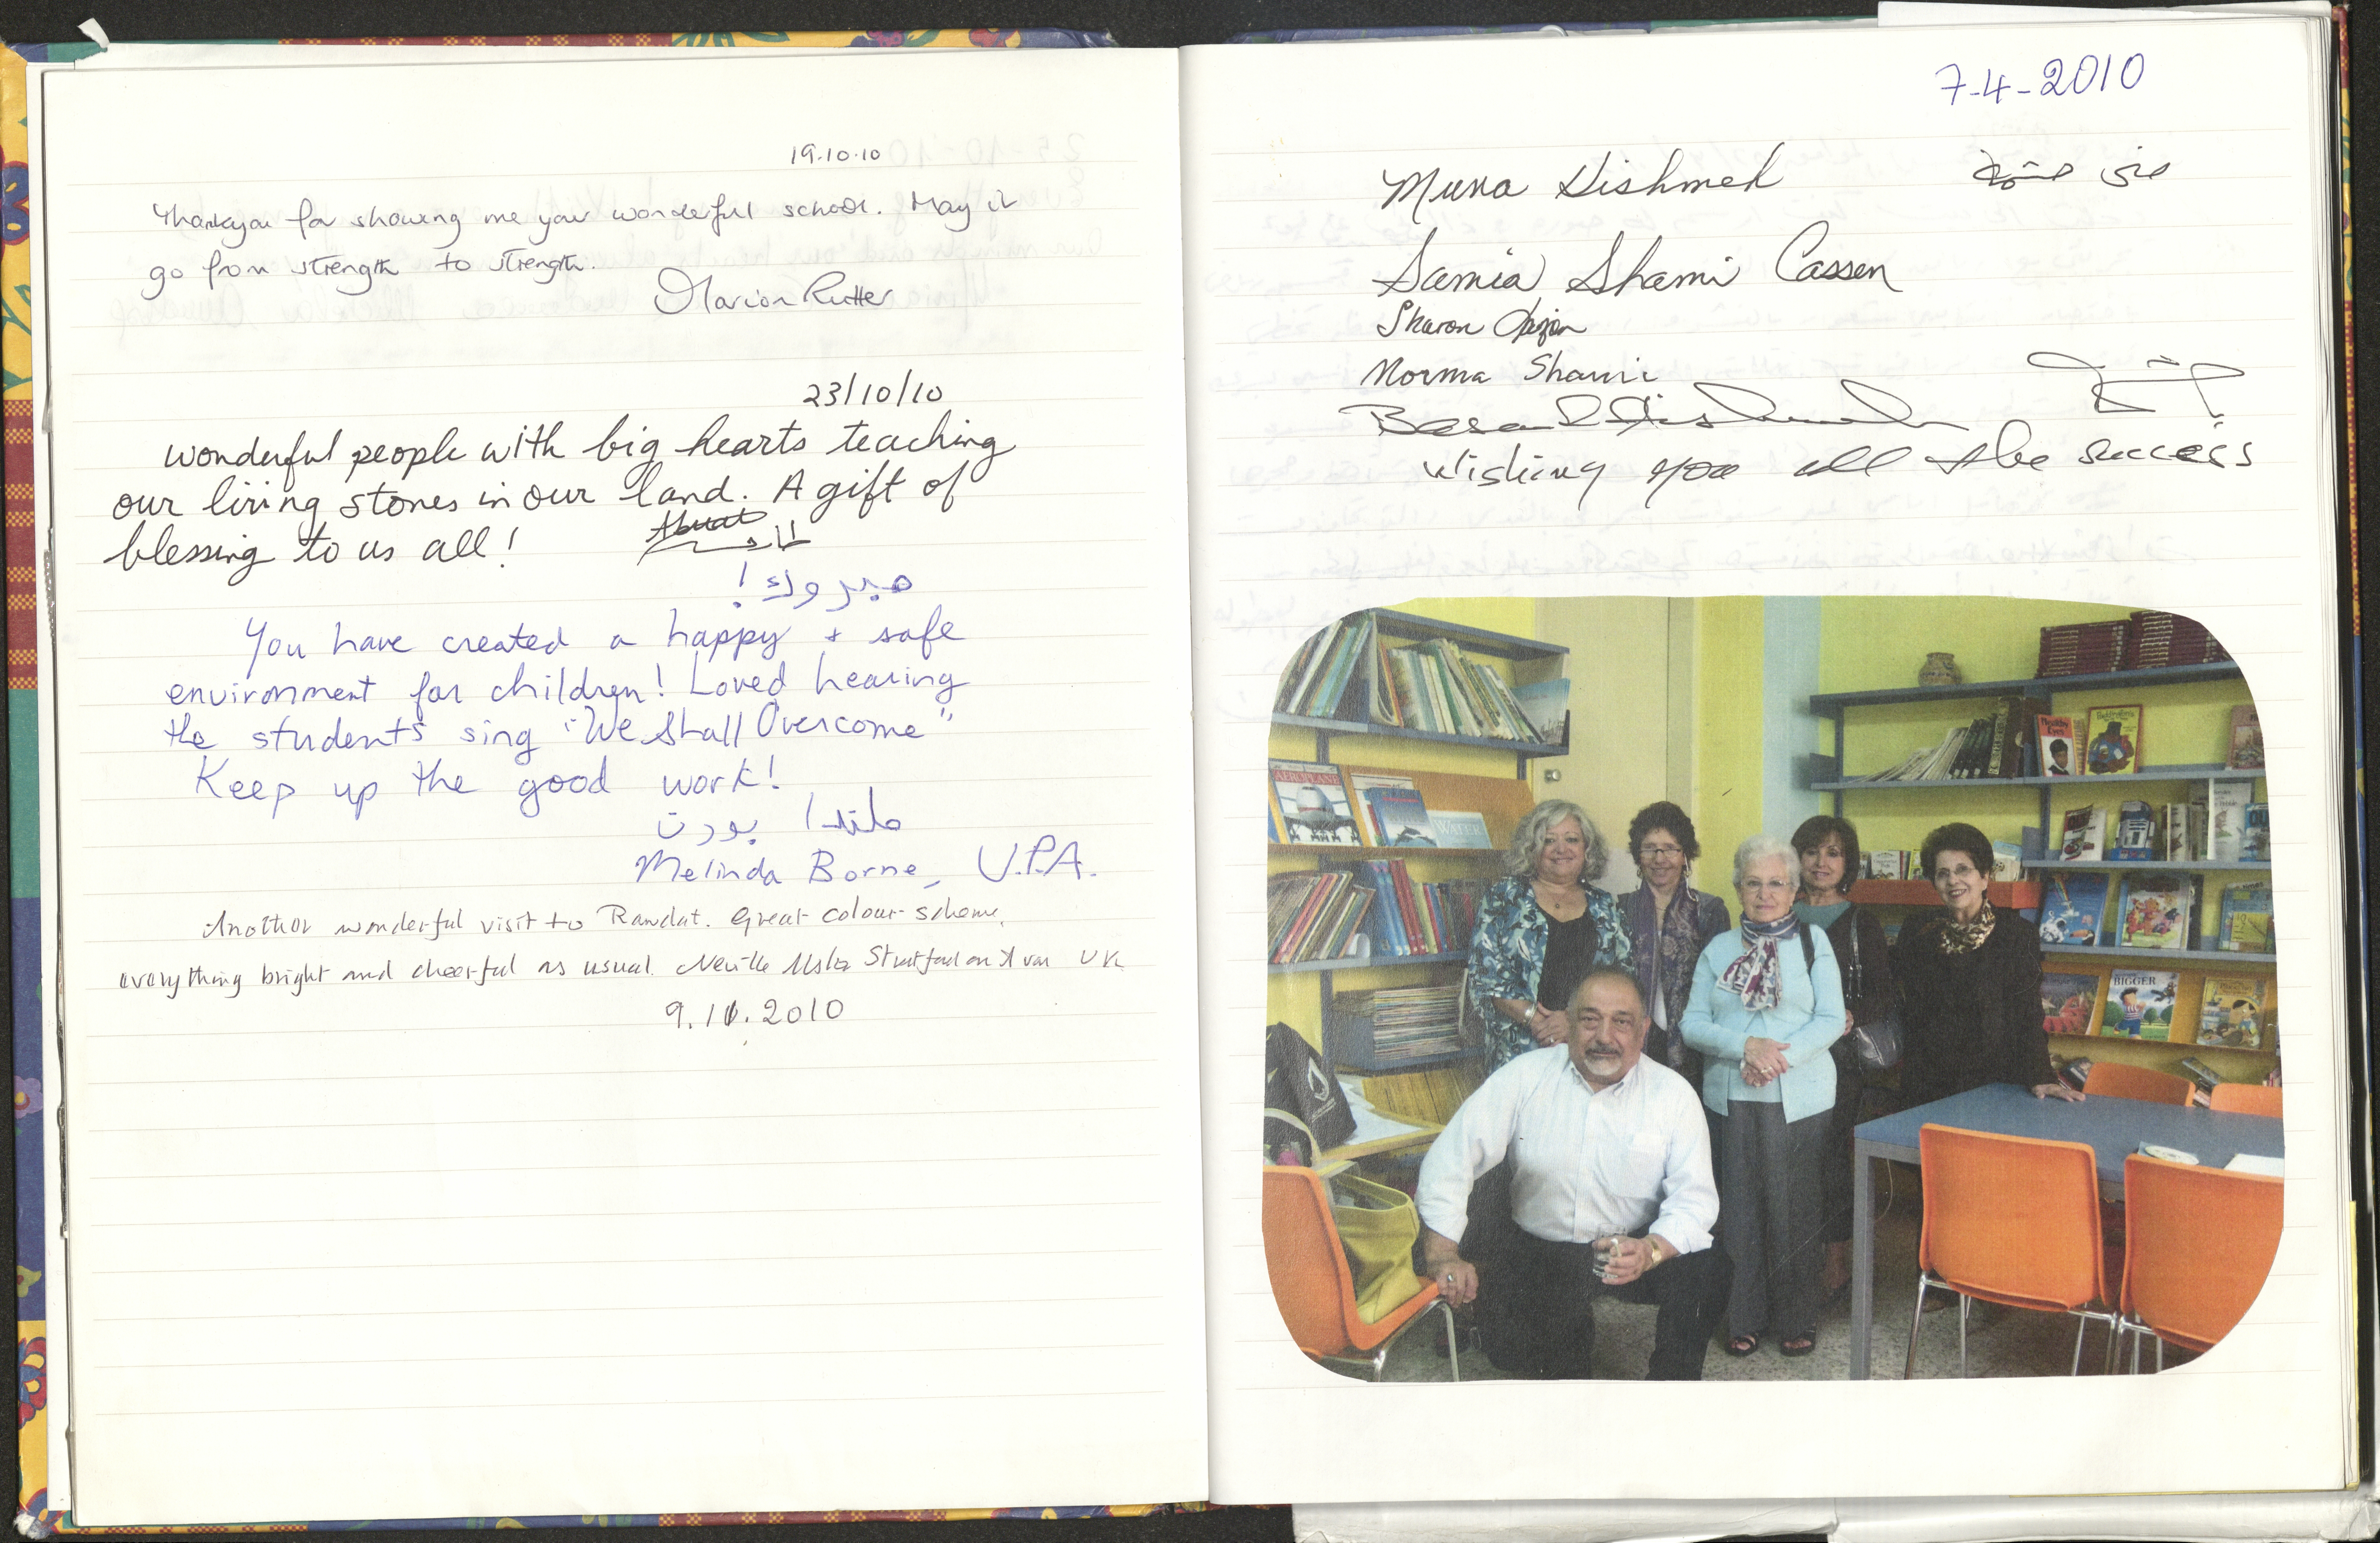 19.10.10
Thankyou for showing me your wonderful school. May it
go from strength to strength.
Marion Rutter
23/10/10
wonderful people with big hearts teaching
our living stones in our land. A gift of
blessing to us all!
مبروك!
You have created a happy + safe
environment for children! Loved hearing
the students sing "We Shall Overcome"
Keep up the good work!
ملندا بورن
Melinda Borne, U.P.A.
Another wonderful visit to Rawdat. Great colour scheme.
everything bright and cheerful as usual. Neville Stratford on Avon UK
9.11.2010
7-4-2010
Muna Hishmeh منى حشمة
Samia Shami Cassen
Sharon
Norma Shami
Hishmeh
Wishing you all the success
AEROPLANE
WATER
Healthy Eyes
BIGGER